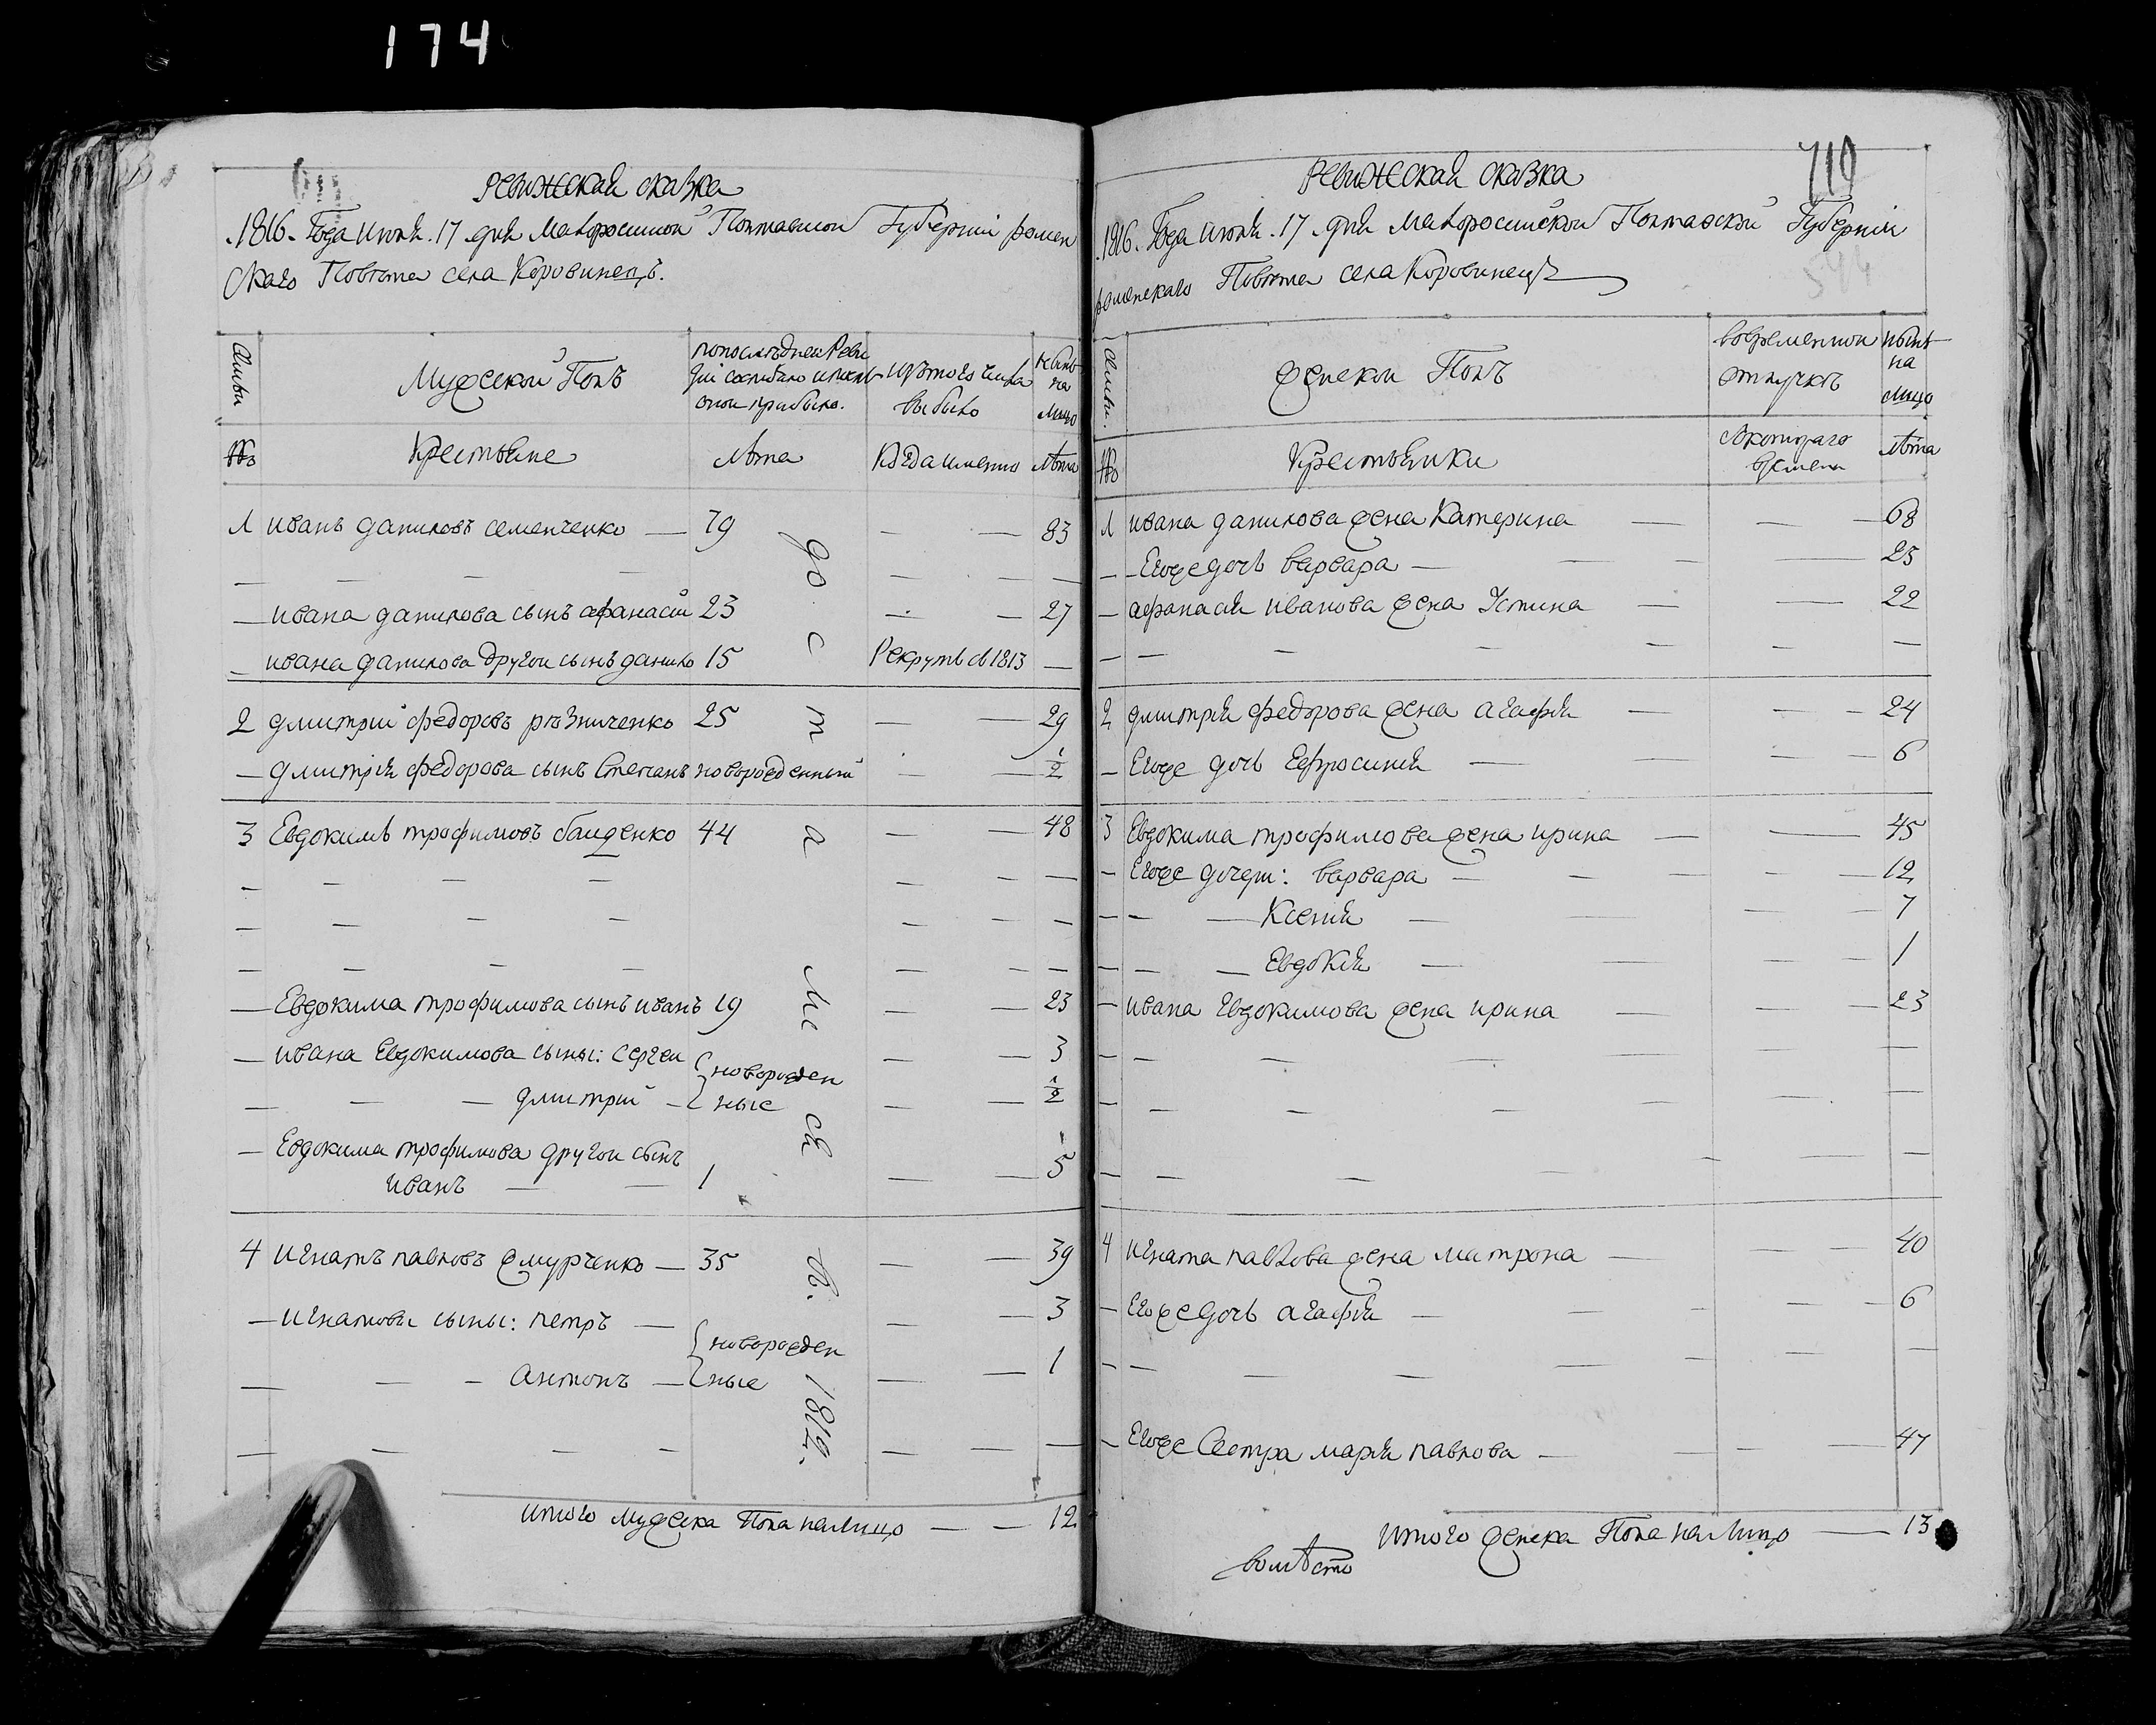 174
Ревижская сказка
1816. Года июня. 17 дня Малоросийской Полтавской Губернии ромен
скаго Повѣта села Коровинецъ.
Семьи
Мужеской Полъ
по последней Реви
зіи состояло и после
оной прибыло.
изъ того числа
выбыло
Нынѣ
на
лицо
№
Крестьяне
Лѣта
Когда именно
Лѣта
1 иванъ даниловъ семенченко — 79 — — 83
— — — — — — —
— ивана данилова сынъ афанасій 23 — — 27
— ивана данилова другой сынъ данило 15 Рекрутъ в 1813 —
2 дмитрій федоровъ рѣзниченко 25 — — 29
— дмитрія федорова сынъ Степанъ новорожденный — — 1/2
3 Евдокимъ трофимовъ баиденко 44 — — 48
— — — — — — —
— — — — — — —
— — — — — — —
— Евдокима трофимова сынъ иванъ 19 — — 23
— ивана Евдокимова сыны: Сергей новорожден — — 3
— — — дмитрій — ные — — 1/2
— Евдокима трофимова другой сынъ
иванъ — — 1 — — 5
4 игнатъ павловъ жмурченко — 35 — — 39
— игнатовы сыны: петръ — — — 3
новорожден
— — — антонъ — ные — — 1
— — — — — — —
до с т а л и с я 1812.
итого мужеска Пола налицо — — 12
710
Ревижская сказка
1816. Года июня. 17 дня Малоросийской Полтавской Губерніи
роменскаго Повѣта села Коровинецъ
Семьи.
Женской Полъ
вовременной
отлучкѣ
нынѣ
на
лицо
№
Крестьянки
Скотораго
времени
Лѣта
1 ивана данилова жена Катерина — — — 68
— Егоже дочь варвара — — — — 25
— афанасія иванова жена Устина — — 22
— — — — — — —
2 дмитрія федорова жена агафія — — — 24
— Егоже дочь Ефросинія — — — — 6
3 Евдокима трофимова жена ирина — — 45
— Егоже дочери: варвара — — — — — 12
— — — Ксенія — — — — 7
— — — Евдокія — — — — 1
— ивана Евдокимова жена ирина — — — 23
— — — — — — —
— — — — — — —
— — — — — — —
4 игната павлова жена матрона — — — 40
— Егоже дочь агафія — — — — — 6
— — — — — — — —
— Егоже Сестра марія павлова — — — — 47
Итого женска Пола налицо — 13
вомѣсто